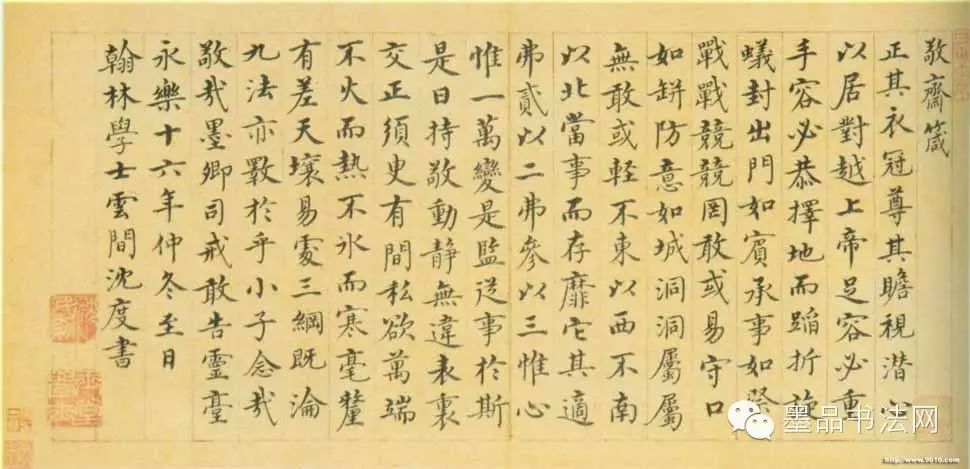 敬齋箴
正其衣冠尊其瞻視潜心
以居對越上帝足容必重
手容必恭擇地而蹈折旋
蟻封出門如賓承事如祭
戰戰兢兢罔敢或易守口
如缾防意如城洞洞屬屬
無敢或輕不東以西不南
以北當事而存靡它其適
弗貳以二弗參以三惟心
惟一萬變是監從事於斯
是曰持敬動靜無違表裏
交正須臾有間私欲萬端
不火而熱不氷而寒毫釐
有差天壤易處三綱既淪
九法亦斁於乎小子念哉
敬哉墨卿司戒敢告靈臺
永樂十六年仲冬至日
翰林學士雲間沈度書
墨品书法网
http://www.9610.com